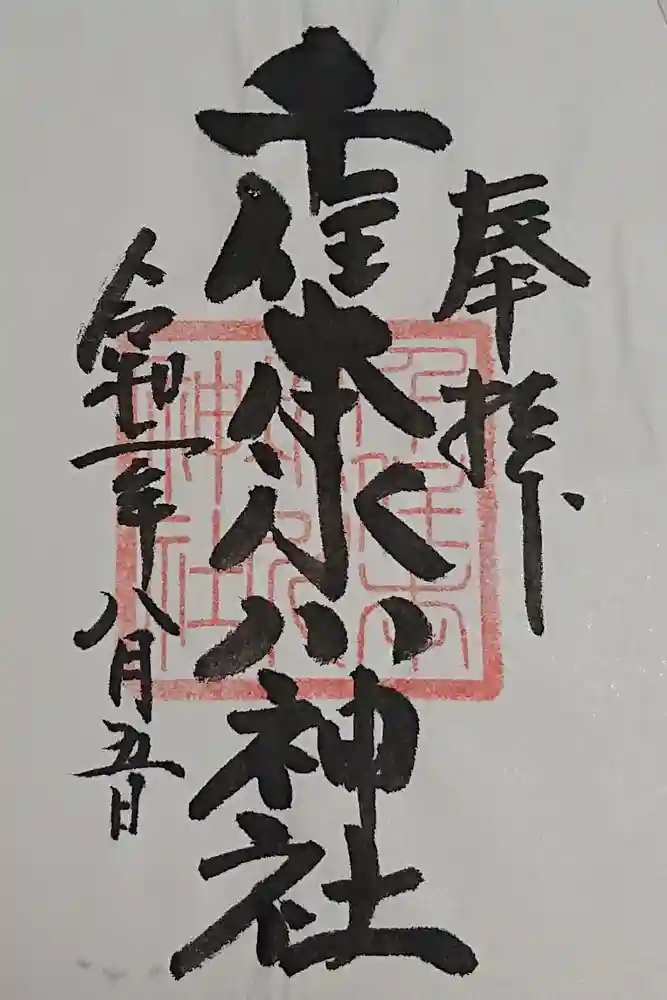 奉拝
千住本氷川神社
令和二年八月五日
千住本
氷川
神社